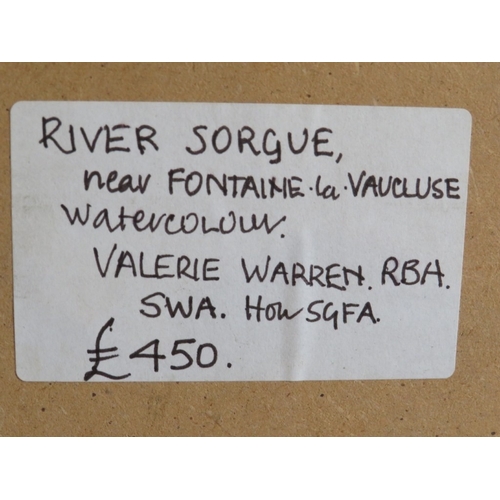 RIVER SORGUE,
near FONTAINE·la·VAUCLUSE
Watercolour.
VALERIE WARREN. RBA.
SWA. Hon SGFA.
£450.